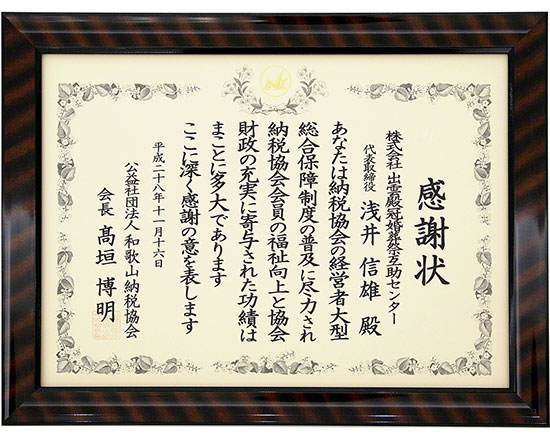 感謝状
株式会社 出雲殿冠婚葬祭互助センター
代表取締役 浅井信雄 殿
あなたは納税協会の経営者大型
総合保障制度の普及に尽力され
納税協会会員の福祉向上と協会
財政の充実に寄与された功績は
まことに多大であります
ここに深く感謝の意を表します
平成二十八年十一月十六日
公益社団法人 和歌山納税協会
会長 髙垣博明